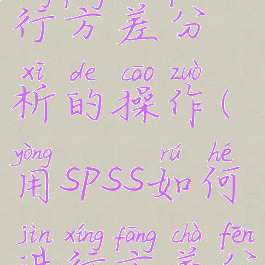 行方差分
xī de cāo zuò
析的操作(
yòng rú hé
用SPSS如何
jìn xíng fāng chà fēn
进行方差分